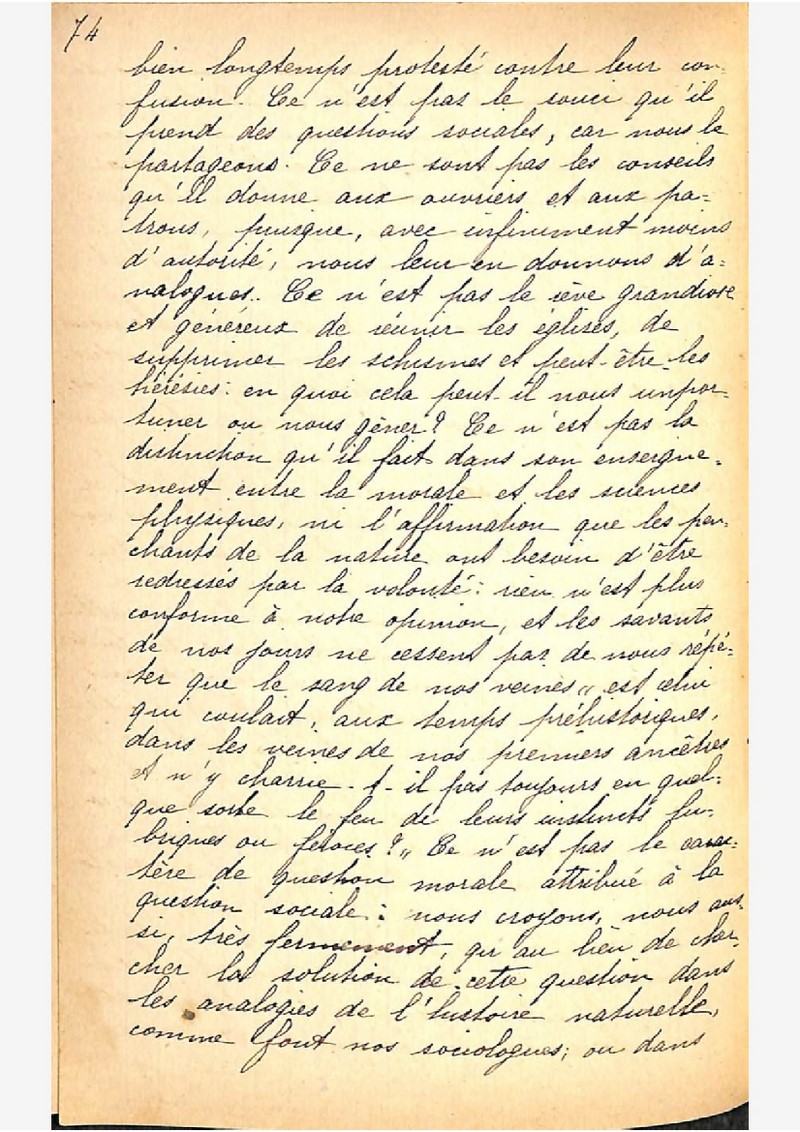 74
bien longtemps protesté contre leur con-
fusion. Ce n'est pas le souci qu'il
prend des questions sociales, car nous le
partageons. Ce ne sont pas les conseils
qu'il donne aux ouvriers et aux pa=
trons, puisque, avec infiniment moins
d'autorité, nous leur en donnons d'a=
nalogues.. Ce n'est pas le rêve grandiose
et généreux de réunir les églises, de
supprimer les schismes et peut-être les
hérésies: en quoi cela peut-il nous impor-
tuner ou nous gêner? Ce n'est pas la
distinction qu'il fait dans son enseigne=
ment entre la morale et les sciences
physiques, ni l'affirmation que les pen-
chants de la nature ont besoin d'être
redressés par la volonté: rien n'est plus
conforme à notre opinion, et les savants
de nos jours ne cessent pas de nous répé=
ter que le sang de nos veines "est celui
qui coulait, aux temps préhistoriques,
dans les veines de nos premiers ancêtres
et n'y charrie-t-il pas toujours en quel=
que sorte le feu de leurs instincts lu-
briques ou féroces?" Ce n'est pas le carac=
tère de question morale attribué à la
question sociale: nous croyons, nous aus-
si, très fermement, qu'au lieu de cher-
cher la solution de cette question dans
les analogies de l'histoire naturelle,
comme font nos sociologues; ou dans